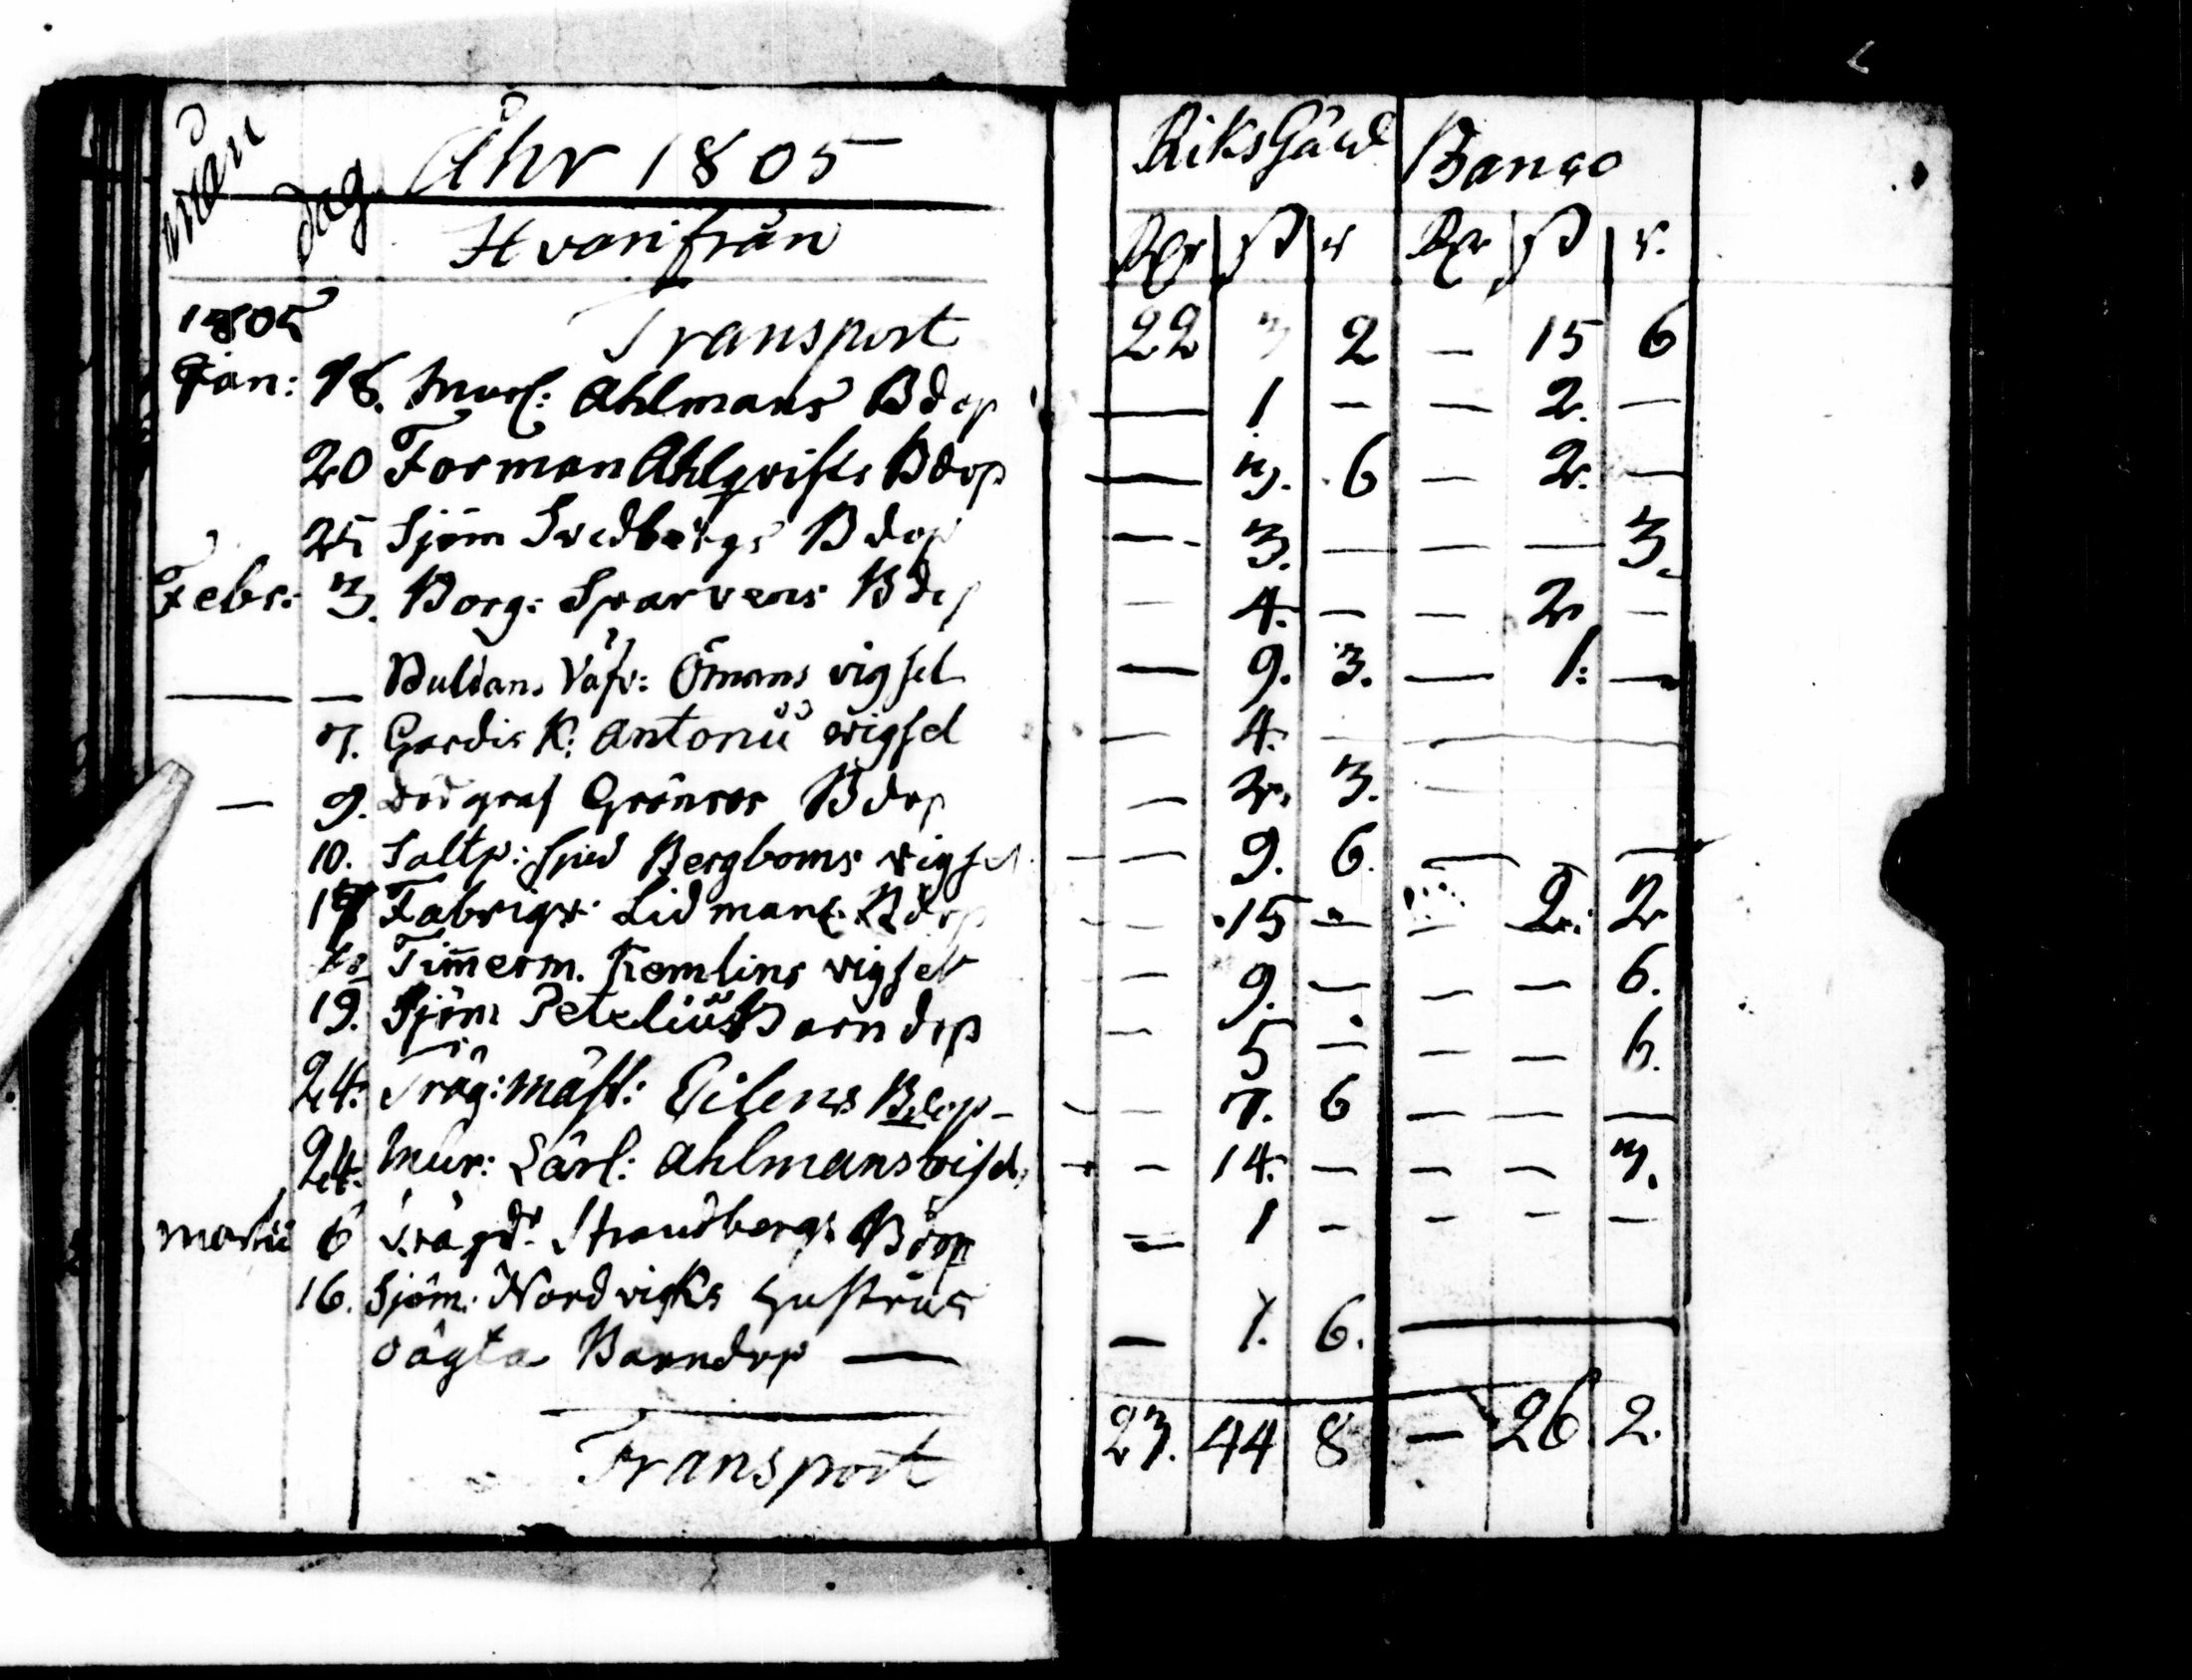 mån dag Åhr 1805 RiksGäld Banco
Hvarifrån Rdr ß r Rdr ß r.
1805 Transport 22 7 2 — 15 6
Jan: 18. Murl: Ahlmans Bdop — 1 — — 2. —
20 Forman Ahlqvists Bdop — 7. 6 — 2. —
25 Sjöm Svedbergs Bdop — 3. — — — 3.
Febr: 3. Borg: Sparvens Bdop — 4. — — 2 —
— — Buldans Väfv: Ömans vigsel — 9. 3. — 1: —
7. Gardis K: Antonii vigsel — 4. — —
— 9. Dödgraf Grönros Bdop — 2. 3.
10. Saltp: sjud Bergboms vigsel — 9. 6. — —
17 Fabriqs: Lidmans Bdop — 15 — — 2. 2
Timmerm. Kemlins vigsel — 9. — — — 6.
19. Sjöm Petelius Barndop — 5 — — — 6.
24. Träg: mäst: Eilens Bdop — — 7. 6 — — —
24. Mur: Lärl: Ahlmans vigsel — 14. — — — 7.
Martii 6 Trägd: Strandbergs Bdop — 1 — — — —
16. Sjöm: Nordvicks hustrus
oägta Barndop — — 1. 6. —
Transport 23. 44 8 — 26 2.